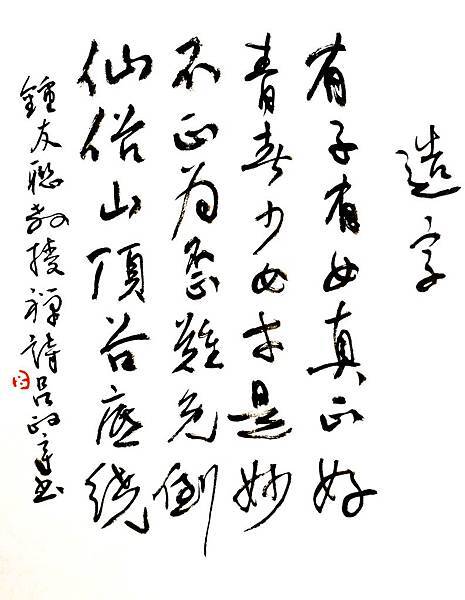 造字
有子有女真正好
青春少女才是妙
不正為歪難免倒
仙俗山頂谷底繞
鍾友聯教授禪詩呂政達書